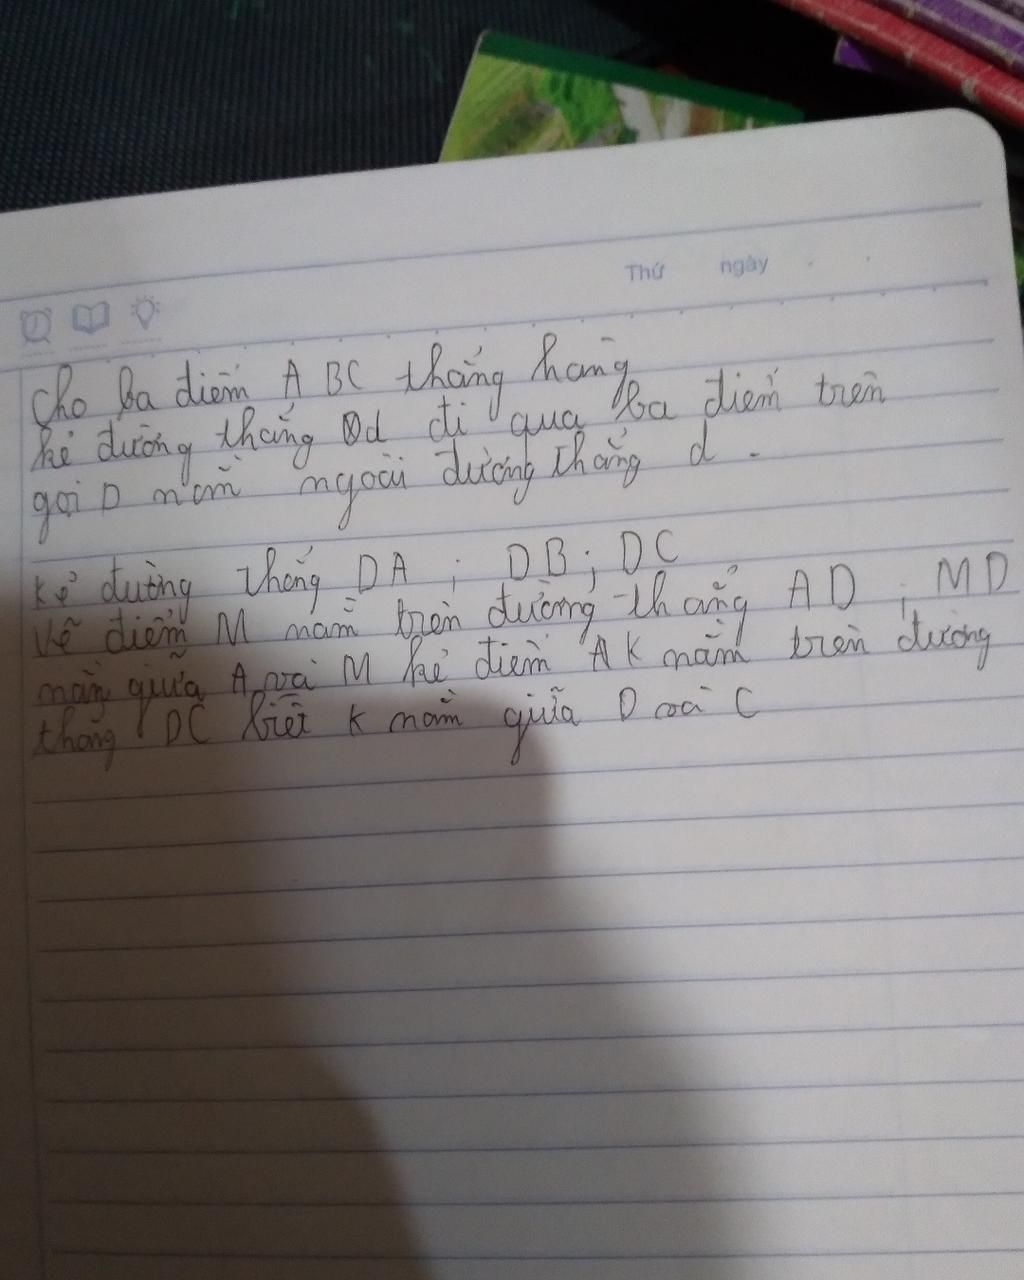 Thứ ngày
Cho ba điểm A BC thẳng hàng
kẻ đường thẳng d đi qua ba điểm trên
gọi D nằm ngoài đường thẳng d.
Kẻ đường thẳng DA ; DB ; DC
Vẽ điểm M nằm trên đường thẳng AD ; MD
nằm giữa A và M kẻ điểm AK nằm trên đường
thẳng DC biết K nằm giữa D và C